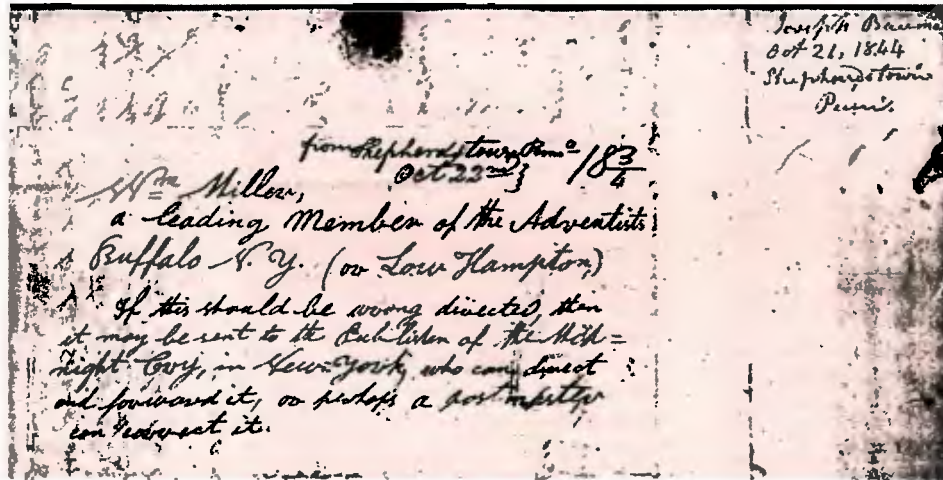 Joseph
Oct 21, 1844
Shepherdstown
Penn.
from Shepherdstown, Penna
Oct 22nd } 18 3/4
Wm Miller,
a leading Member of the Adventists
Buffalo N. Y. (or Low Hampton,)
If this should be wrong directed, then
it may be sent to the Publisher of the Mid=
night Cry, in New-York, who can direct
and forward it, or perhaps a postmaster
can correct it.